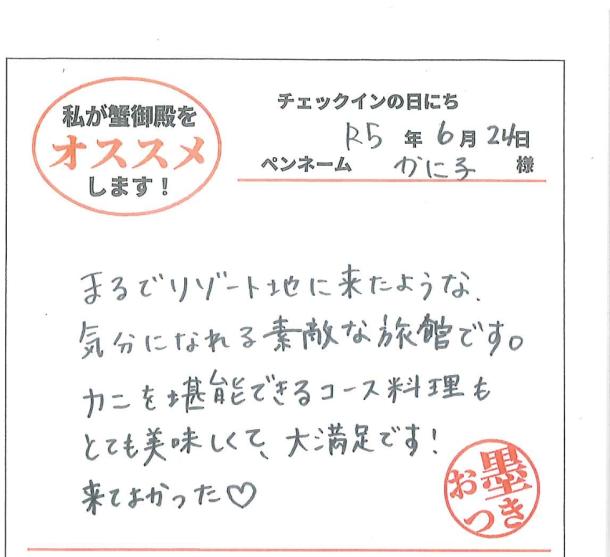 私が蟹御殿を
オススメ
します！
チェックインの日にち
R5 年 6 月 24日
ペンネーム かに子 様
まるでリゾート地に来たような、
気分になれる素敵な旅館です。
カニを堪能できるコース料理も
とても美味しくて、大満足です！
来てよかった♡
お墨
つき